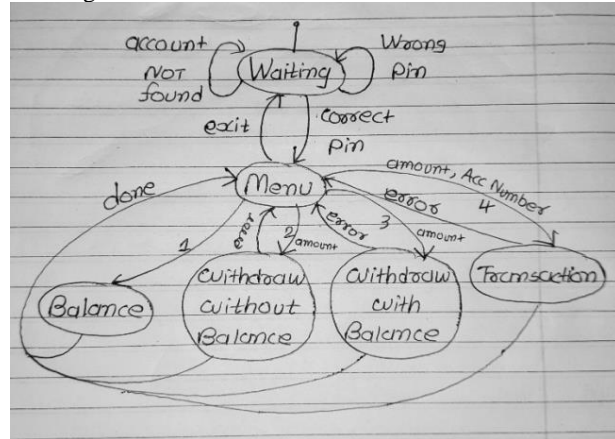 account
NOT
found
Waiting
Wrong
Pin
exit
correct
pin
Menu
done
amount, Acc Number
error
4
1
error
2
amount
error
3
amount
Balance
Withdraw
Without
Balance
Withdraw
With
Balance
Transaction